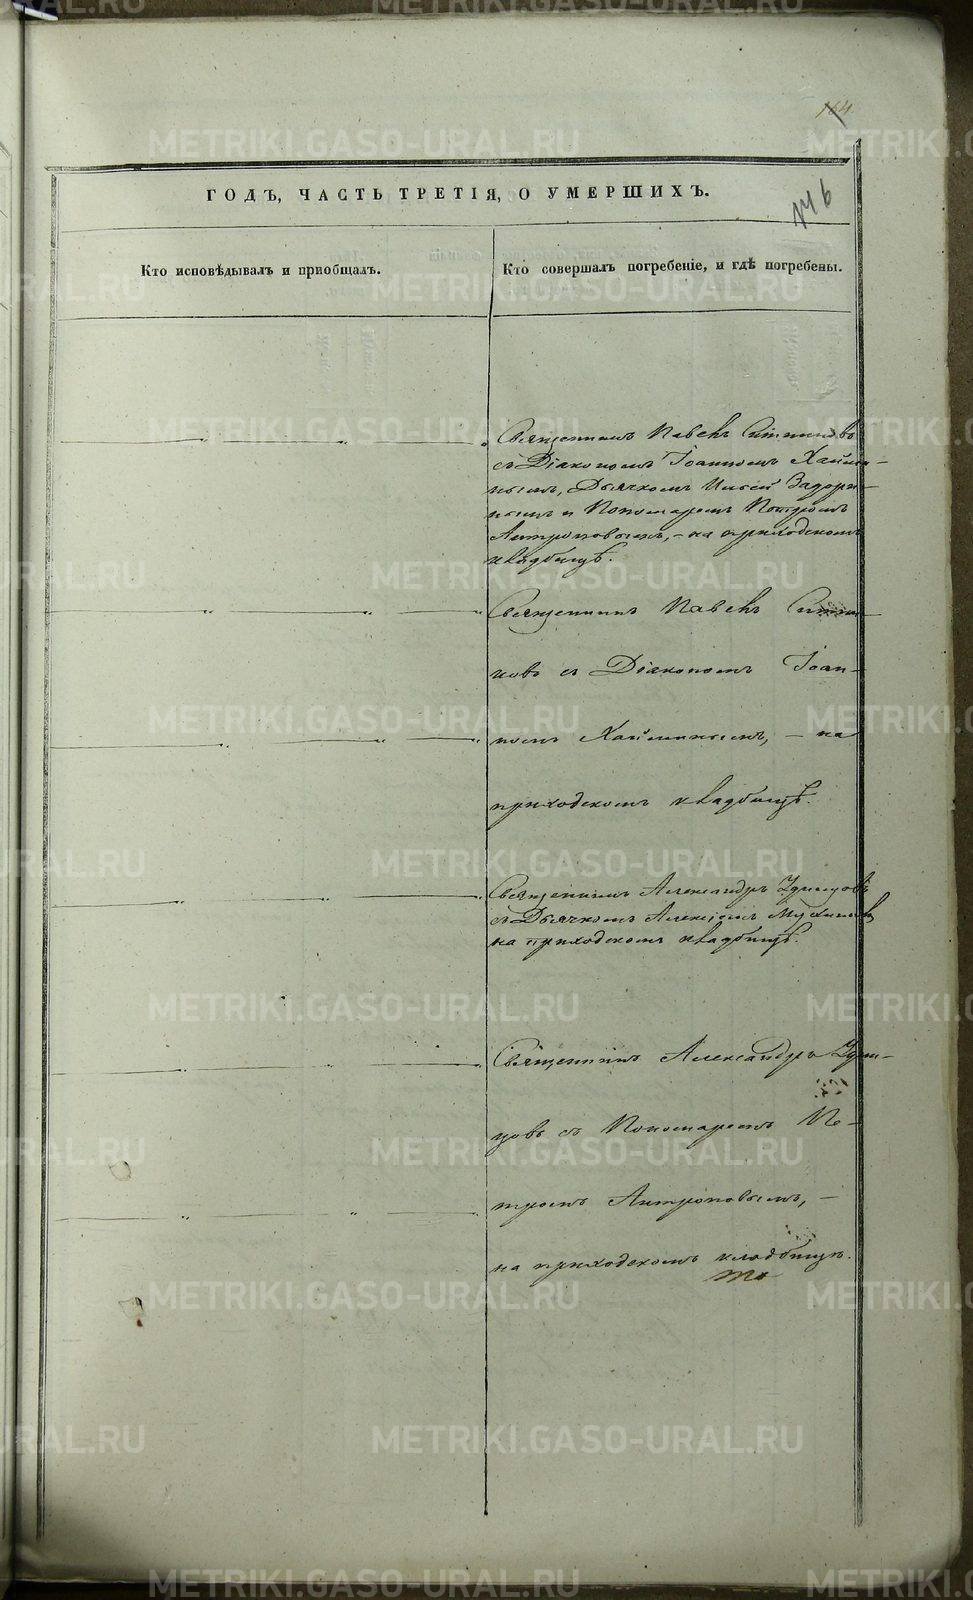 METRIKI.GASO-URAL.RU
164
ГОДЪ, ЧАСТЬ ТРЕТІЯ, О УМЕРШИХЪ.
146
Кто исповѣдывалъ и приобщалъ.
Кто совершалъ погребеніе, и гдѣ погребены.
Священникъ Павелъ
съ Діакономъ Іоанномъ Хайми-
нымъ, Дьячкомъ Ильей Задори-
нымъ и Пономаремъ Петромъ
Антроповымъ, - на приходскомъ
кладбищѣ.
Священникъ Павелъ
ковъ съ Діакономъ Іоан-
номъ Хайминымъ, - на
приходскомъ кладбищѣ.
Священникъ Александръ Удинцовъ
съ Дьячкомъ Алексіемъ
на приходскомъ кладбищѣ.
Священникъ Александръ Удин-
цовъ съ Пономаремъ Пе-
тромъ Антроповымъ, -
на приходскомъ кладбищѣ.